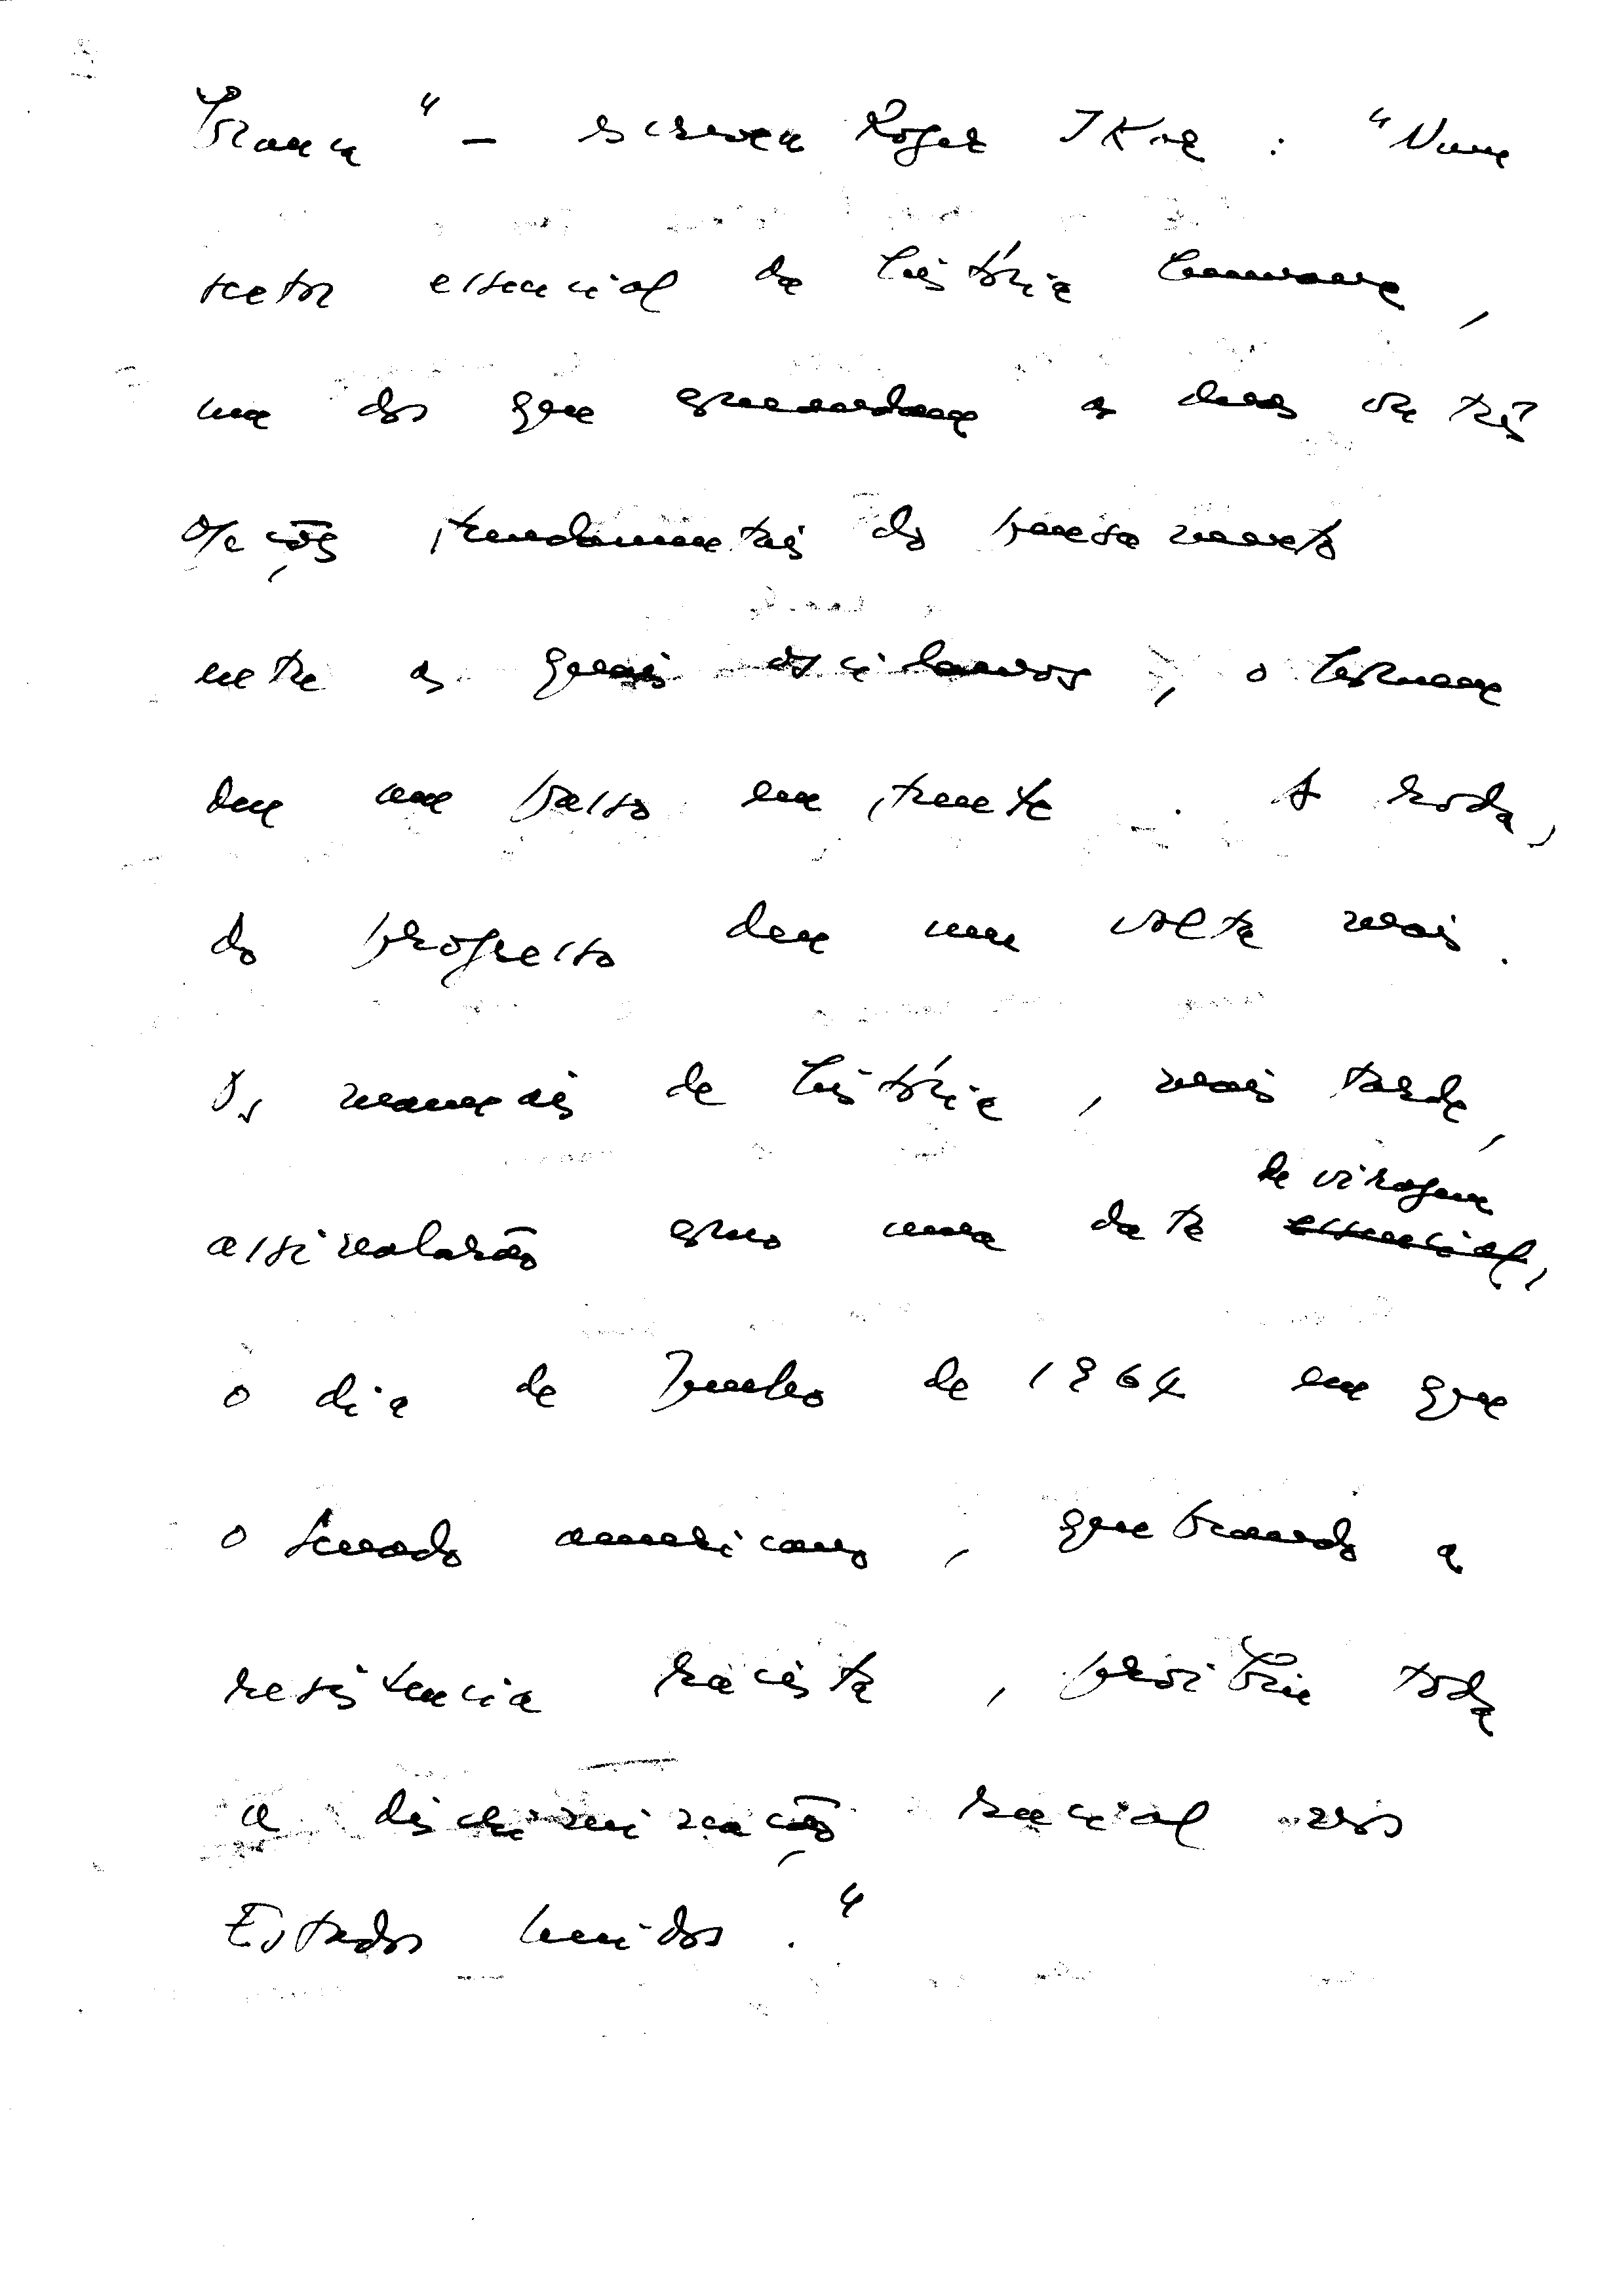 branca" — escreveu Roger IKor : "Num
setor essencial da história humana,
um dos que comandam as duas ou três
opções fundamentais do pensamento
entre as quais oscilamos, o homem
deu um passo em frente. A roda,
do progresso deu uma volta mais.
Os manuais de história, mais tarde,
assinalarão como uma data de viragem
essencial,
o dia de Junho de 1964 em que
o Senado americano, quebrando a
resistencia racista, proibiu toda
a discriminação racial nos
Estados Unidos."